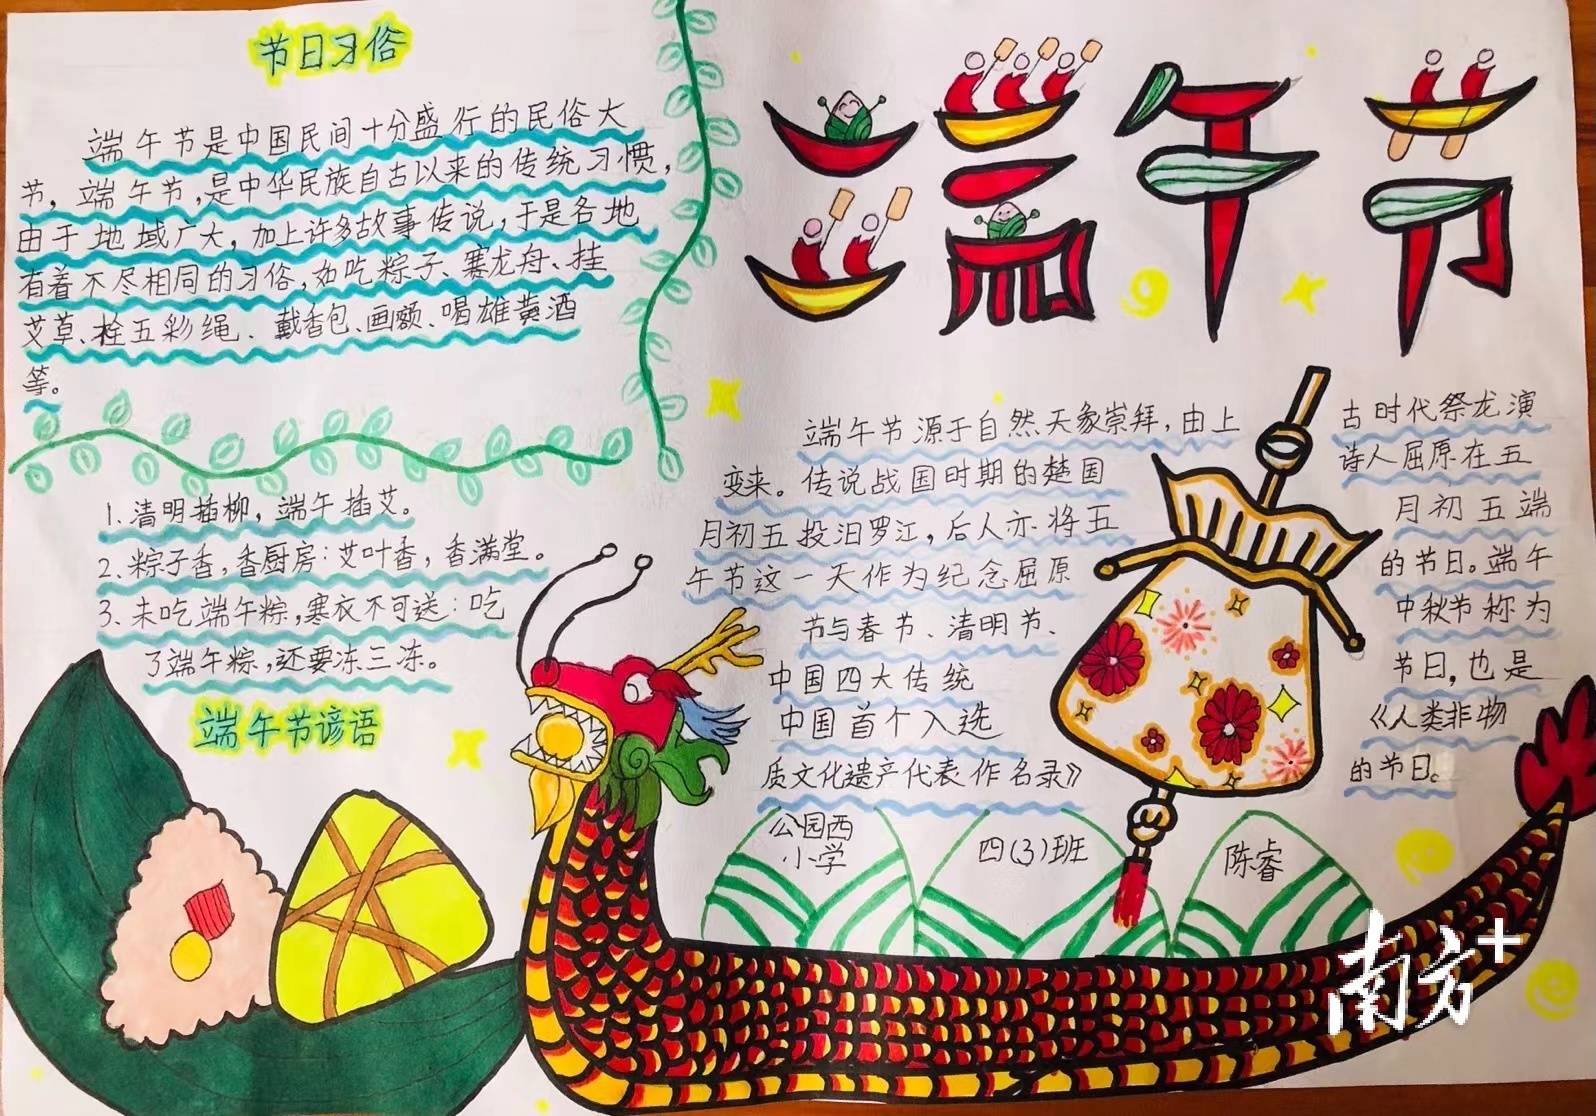 节日习俗
端午节是中国民间十分盛行的民俗大
节，端午节，是中华民族自古以来的传统习惯，
由于地域广大，加上许多故事传说，于是各地
有着不尽相同的习俗，如吃粽子、赛龙舟、挂
艾草、栓五彩绳、戴香包、画额、喝雄黄酒
等。
1、清明插柳，端午插艾。
2、粽子香，香厨房：艾叶香，香满堂。
3、未吃端午粽，寒衣不可送：吃
了端午粽，还要冻三冻。
端午节谚语
端午节
端午节源于自然天象崇拜，由上 古时代祭龙演
变来。传说战国时期的楚国 诗人屈原在五
月初五投汨罗江，后人亦将五 月初五端
午节这一天作为纪念屈原 的节日。端午
节与春节、清明节、 中秋节称为
中国四大传统 节日，也是
中国首个入选 《人类非物
质文化遗产代表作名录》 的节日。
公园西
小学
四(3)班
陈睿
南方+